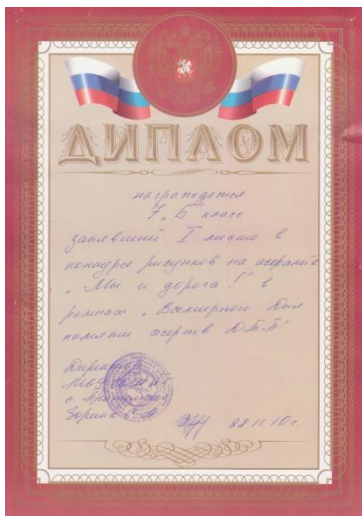 ДИПЛОМ
награждается
7 „Б" класс
занявший I место в
конкурсе рисунков на асфальте
„Мы и дорога!" в
рамках „Всемирного Дня
памяти жертв ДТП"
Директор
с.
Зорина
22.11.10г.